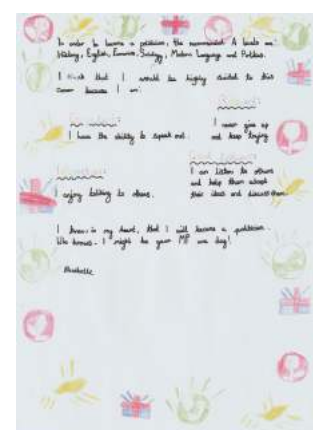 In order to become a politician, the recommended A levels are:
History, English, Economics, Sociology, Modern Language and Politics.
I think that I would be highly suited to this
career because I am:
I have the ability to speak out.
I never give up
and keep trying
I enjoy talking to others.
I can listen to others
and help them adapt
their ideas and discuss them.
I know, in my heart, that I will become a politician.
Who knows - I might be your MP one day!